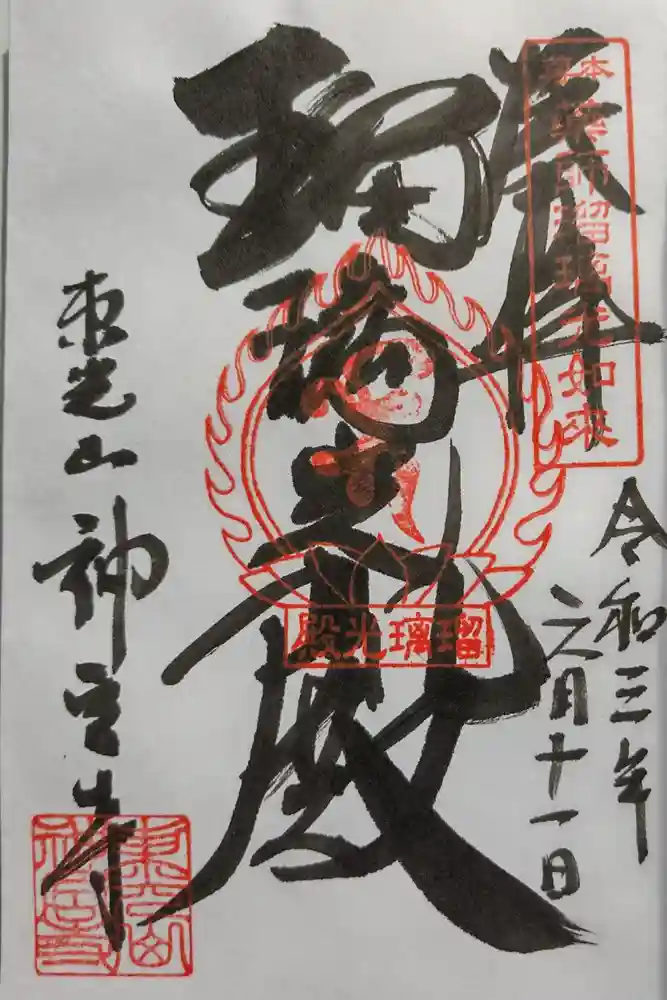 奉拝
本尊
薬師瑠璃光如来
令和三年
六月十一日
瑠璃光殿
瑠璃光殿
東光山 神宮寺
東光山
神宮寺